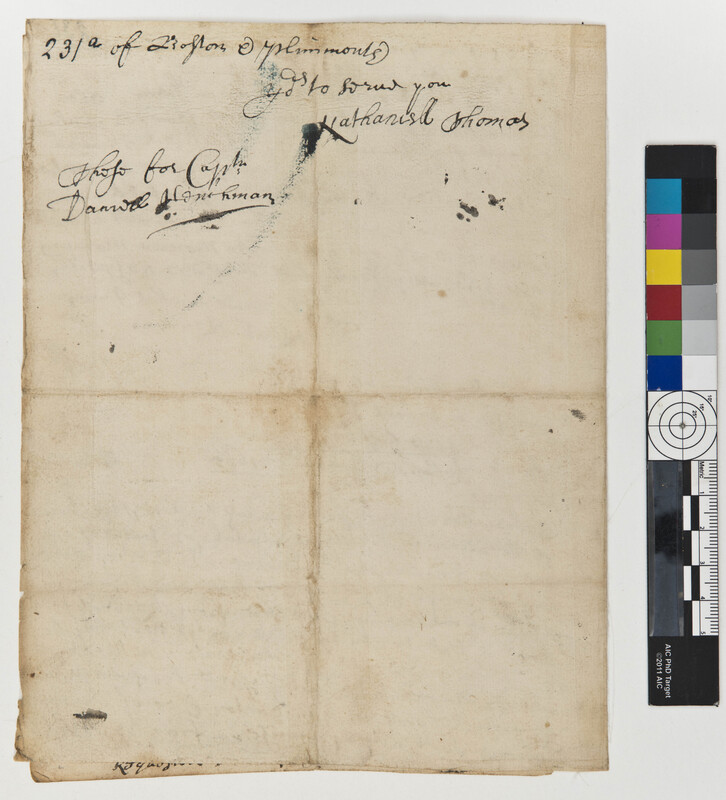 231a of Boston & plimmouth
yors to serve you
Nathaniell Thomas
These for Captn
Daniell Henchman
AIC PhD Target
©2011 AIC
Metric
1
2
3
4
5